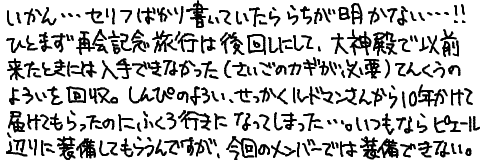 いかん…セリフばかり書いていたららちが明かない…!!
ひとまず再会記念旅行は後回しにして、大神殿で以前
来たときには入手できなかった(さいごのカギが必要)てんくうの
よろいを回収。しんぴのよろい、せっかくルドマンさんから10年かけて
届けてもらったのにふくろ行きになってしまった…。いつもならピエール
辺りに装備してもらうんですが、今回のメンバーでは装備できない。